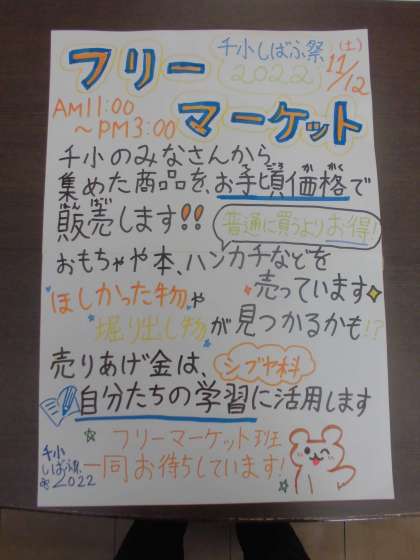 千小しばふ祭
2022
11/12
(土)
フリー
マーケット
AM11:00
～PM3:00
千小のみなさんから
集めた商品を、お手頃価格で
ごろ かかく
販売します!!
はんばい
普通に買うよりお得!
おもちゃや本、ハンカチなどを
売っています
ほしかった物や
掘り出し物が見つかるかも!?
売りあげ金は、シブヤ科
自分たちの学習に活用します
フリーマーケット班
一同お待ちしています!
千小
しばふ祭
2022